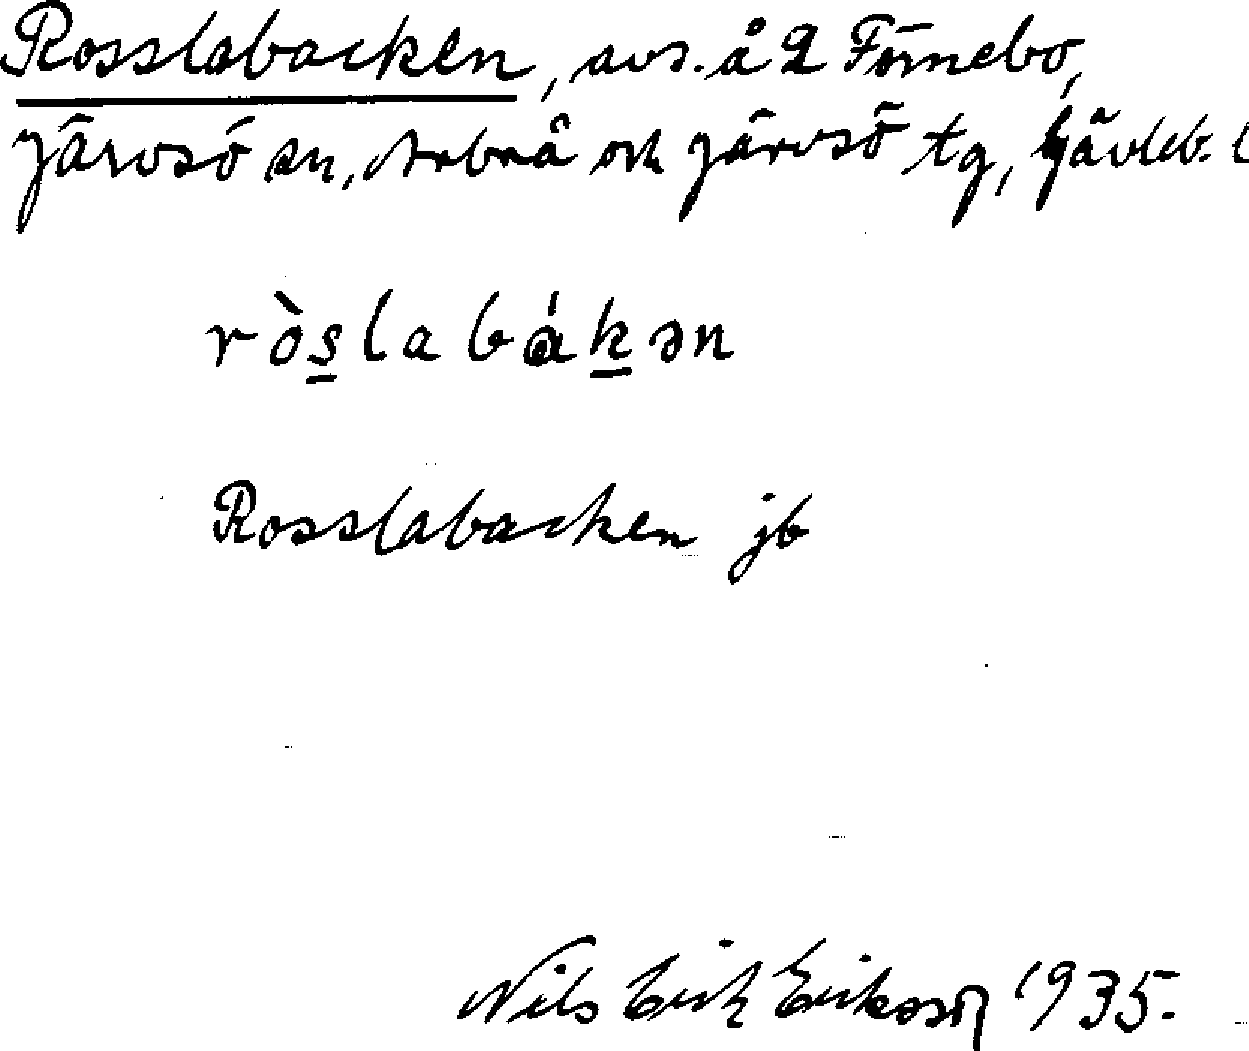 Rosslabacken, avs. å 2 Förnebo,
Järvsö sn, Arbrå och Järvsö tg, Gävleb. l
ròs̱labákən
Rosslabacken jb
Nils Erik Eriksson 1935.